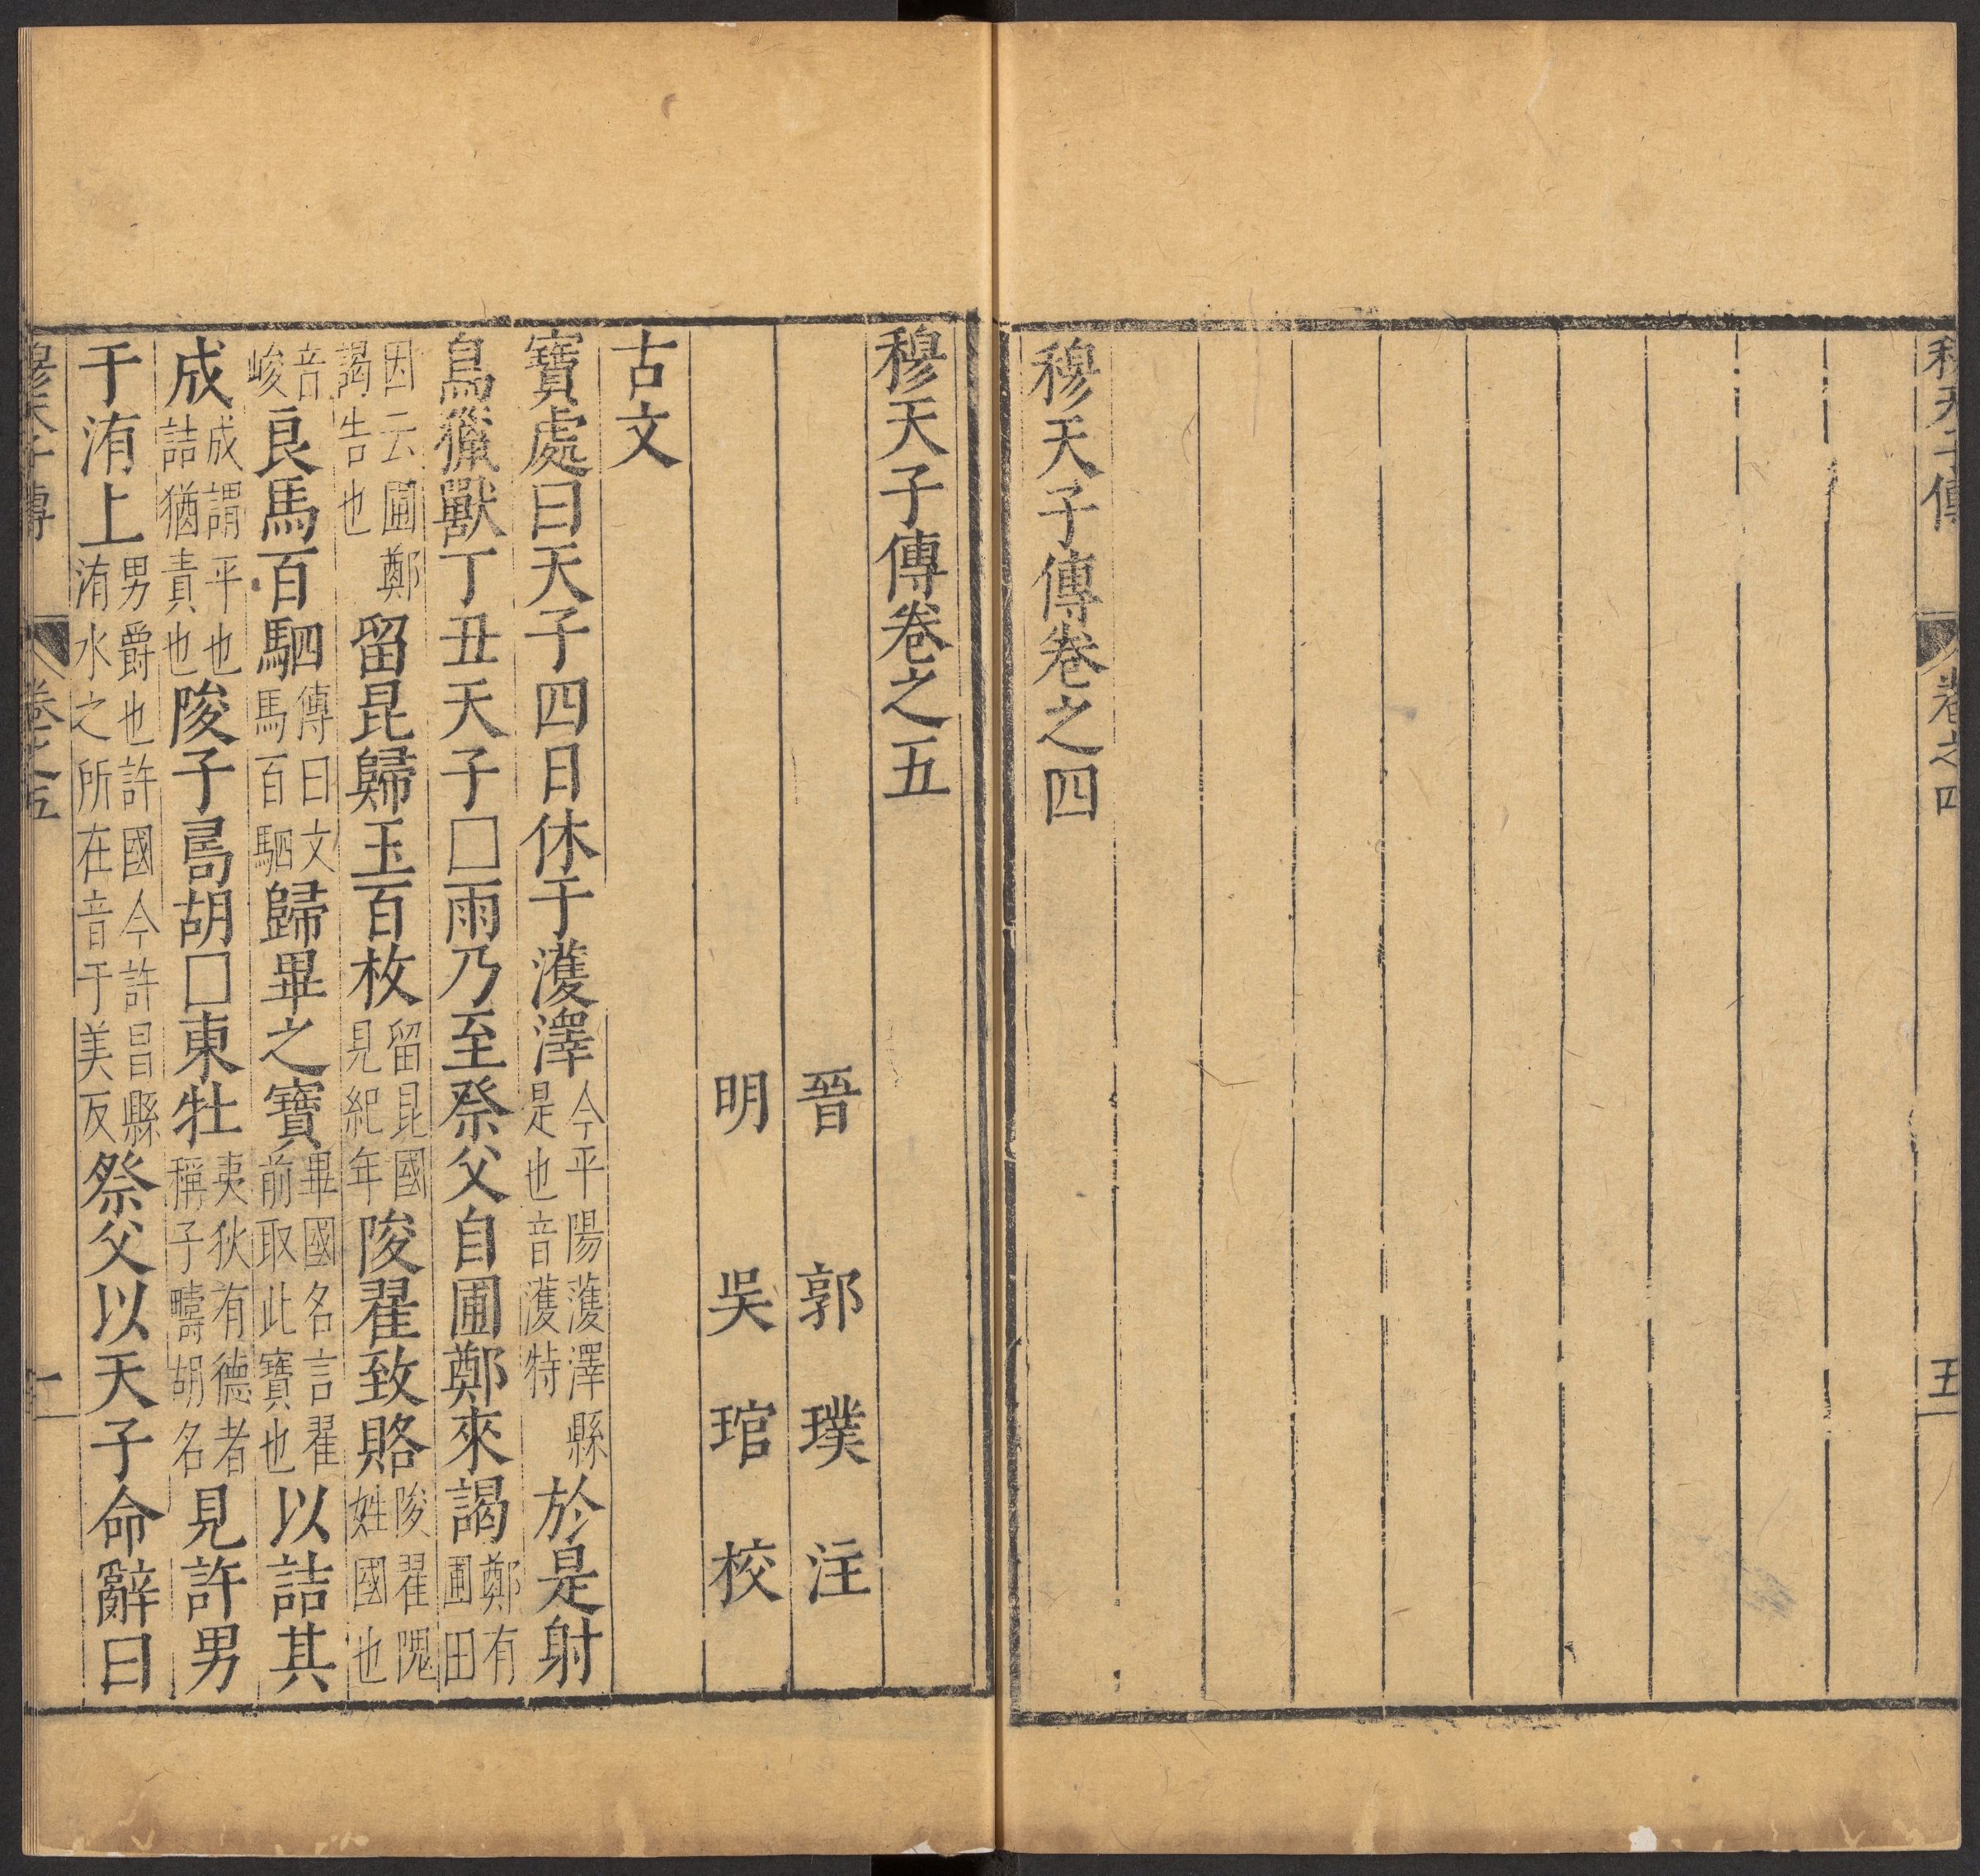 穆天子傳 卷之四 五
穆天子傳卷之四
穆天子傳卷之五
晉 郭璞 注
明 吳琯 校
古文
寶處曰天子四日休于濩澤今平陽濩澤縣是也音濩特於是射
鳥獵獸丁丑天子□雨乃至祭父自圃鄭來謁鄭有圃田
因云圃鄭謁告也留昆歸玉百枚留昆國見紀年陖翟致賂陖翟隗姓國也
音峻良馬百駟傳曰文馬百駟歸畢之寶畢國名言翟前取此寶也以詰其
成成謂平也詰猶責也陖子胡□東牡夷狄有德者稱子疇胡名見許男
于洧上男爵也許國今許昌縣洧水之所在音于美反祭父以天子命辭曰
穆天子傳 卷之五 一